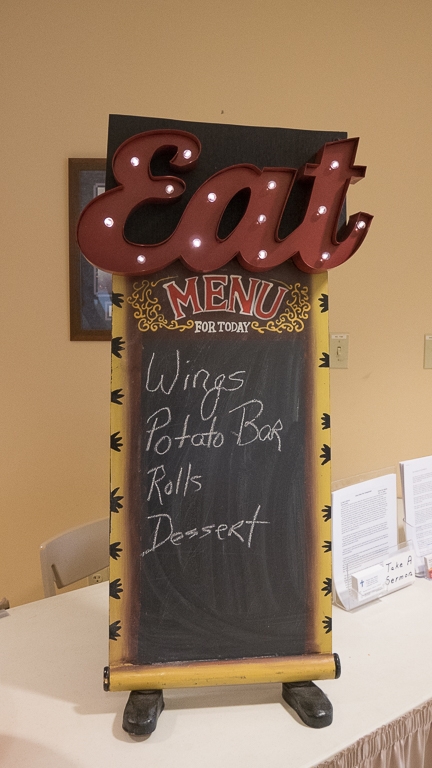 Eat
MENU
FOR TODAY
Wings
Potato Bar
Rolls
Dessert
Take A
Sermon